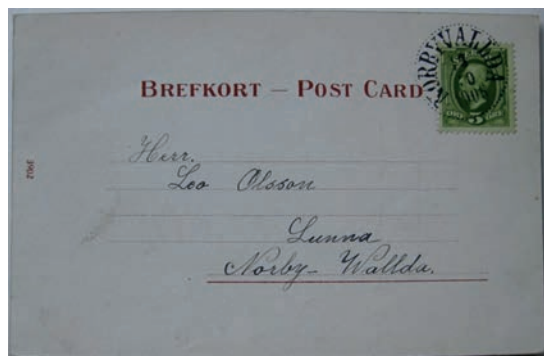 NORBYVALLDA
BREFKORT – POST CARD
5
Herr.
Leo Olsson
Lunna
Norby- Wallda.